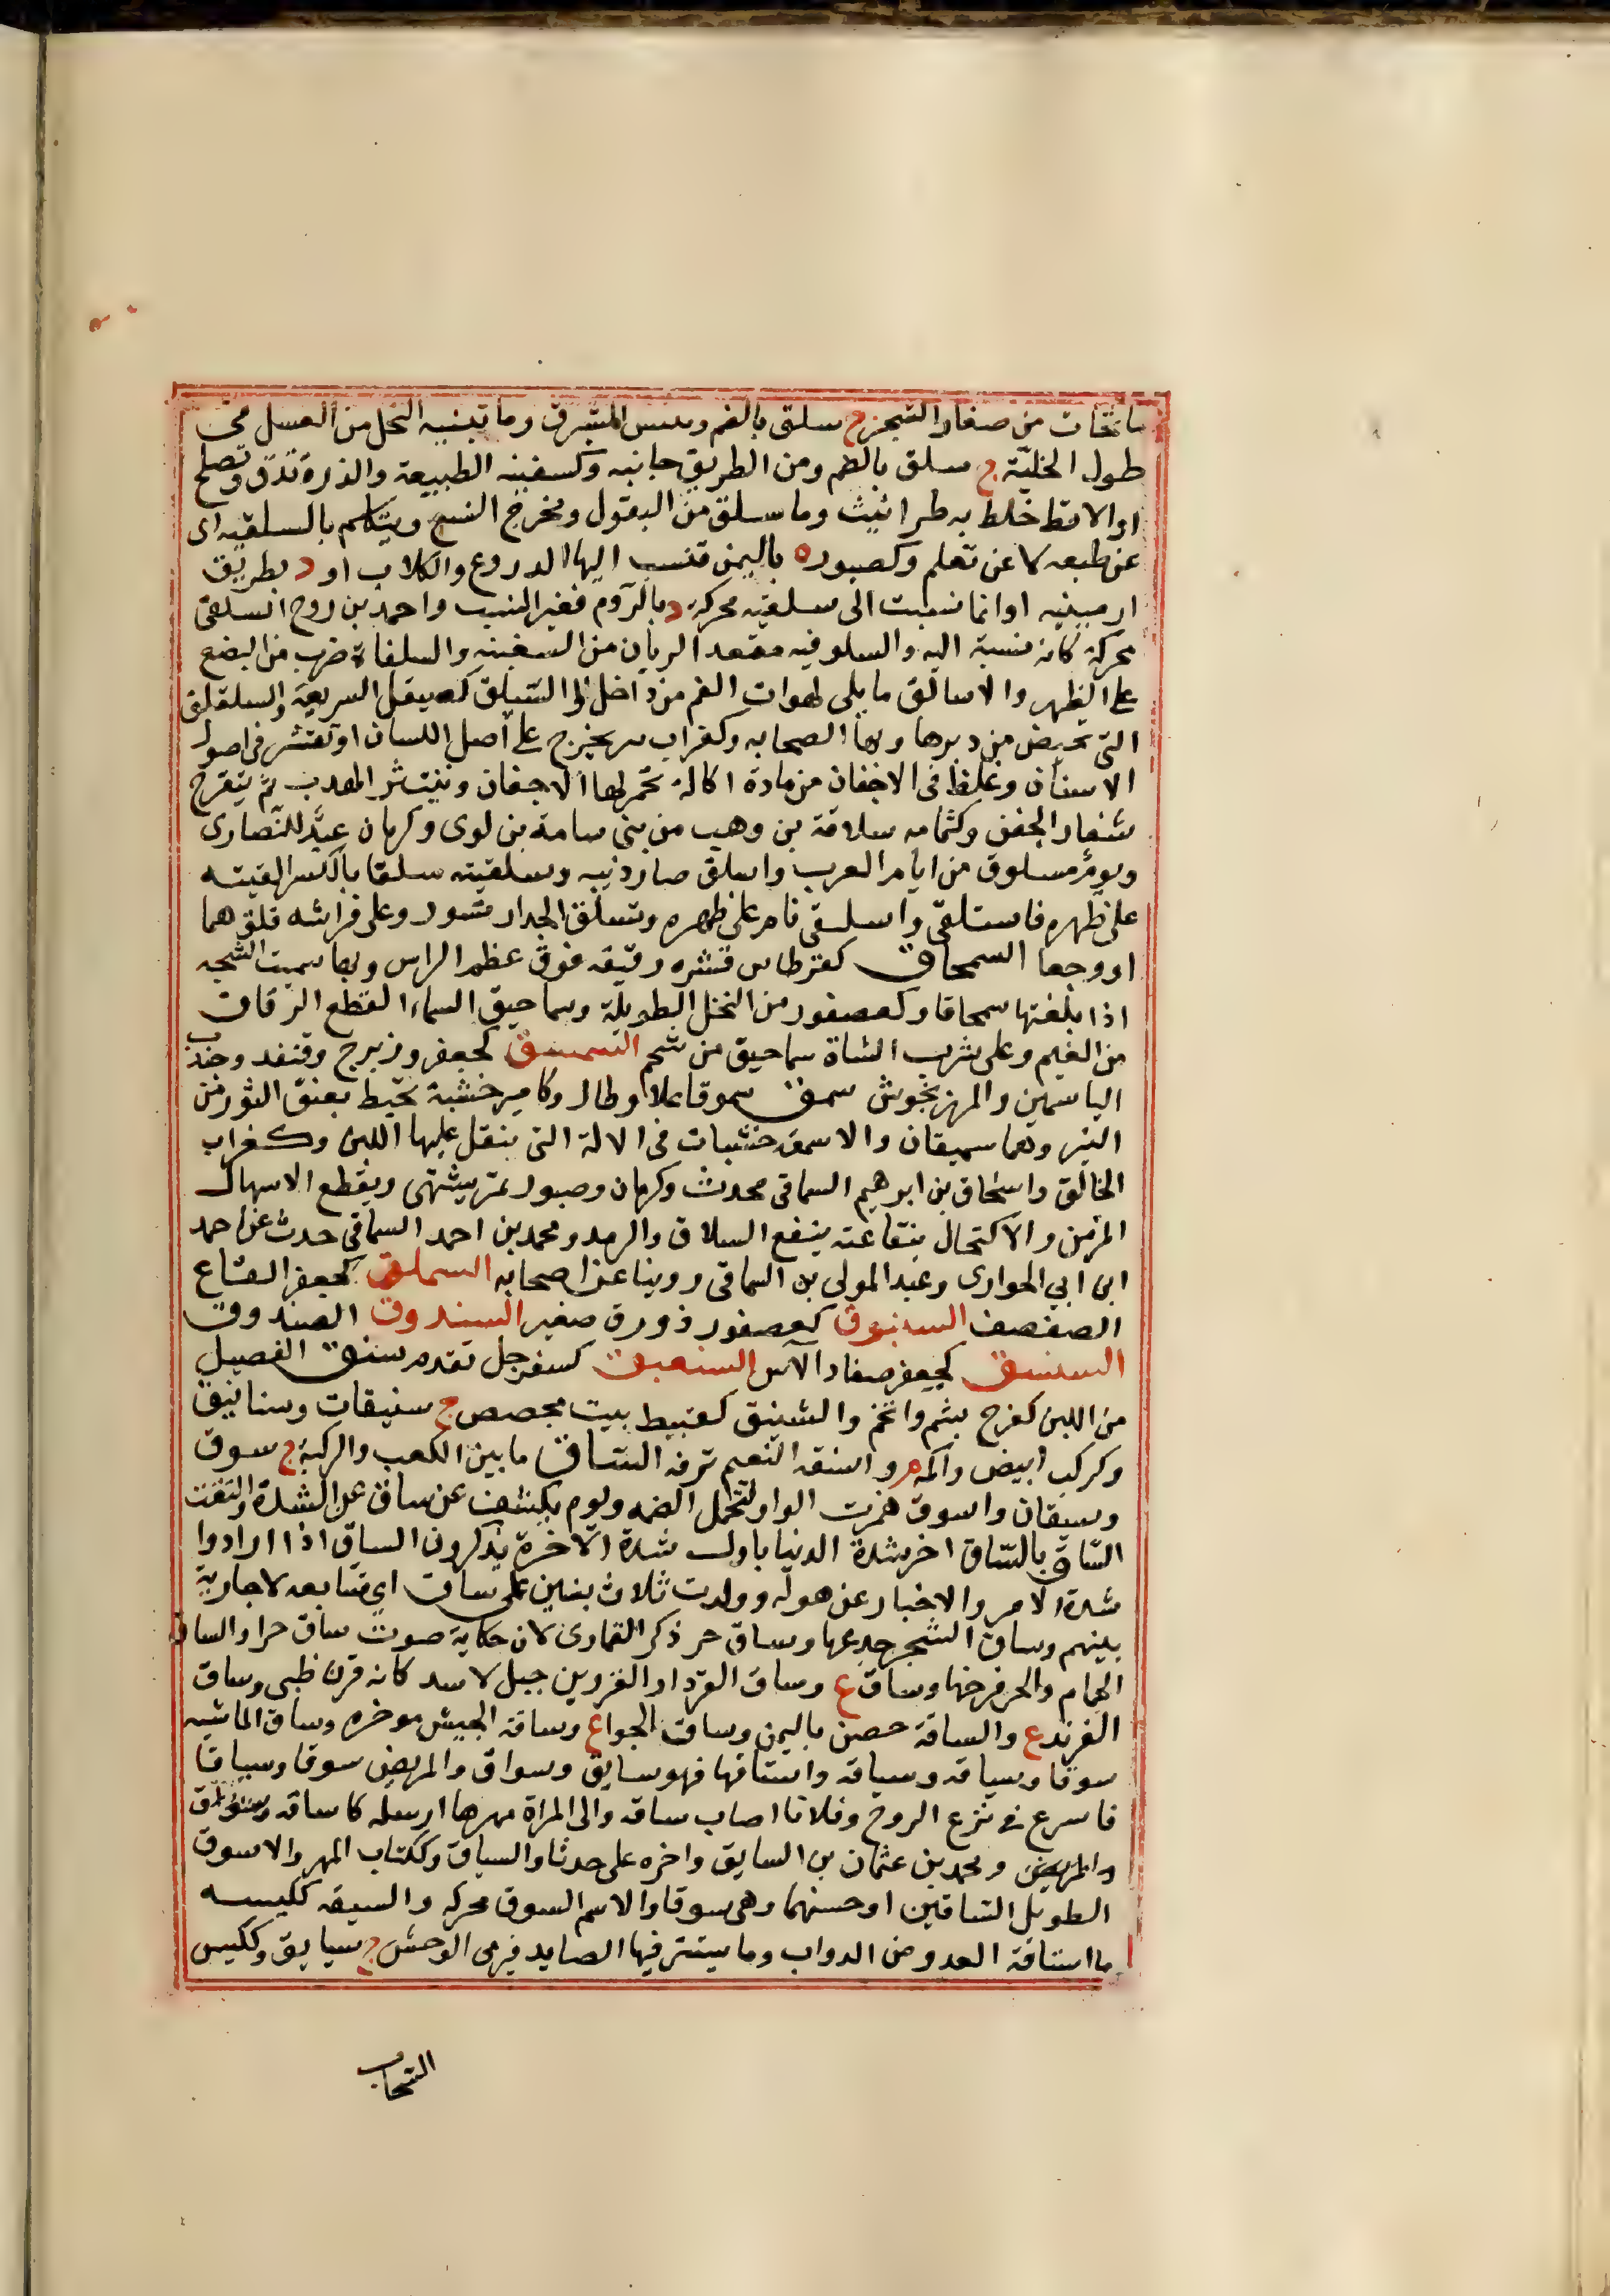 ما تحات من صغار الشجر ج سلق بالضم ويبس الشبرق وما تبنيه النحل من العسل في
طول الخليّة ج سلق بالضم ومن الطريق جانبه وكسفينه الطبيعة والذرة تدق وتصلح
او الاقط خلط به طراثيث وما سلق من البقول ومخرج النسع ويتكلم بالسلقيه اى
عن طبعه لا عن تعلم وكصبور ه باليمن تنسب اليها الدروع والكلاب او د بطريق
ارمينيه او انما نسبت الى سلقيه محركة د بالروم فغير النسب واحمد بن روح السلقى
محركة كانه نسبة اليه والسلوقيه مقعد الربان من السفينه والسلقاة ضرب من البضع
على الظهر والاسالق ما يلى لهوات الفم من داخل والسيلق كصيقل السريعة والسلقلق
التى تحيض من دبرها وبها الصحابه وكغراب بثر يخرج على اصل اللسان او تقشر فى اصول
الاسنان وغلظ فى الاجفان من مادة اكالة تحمر لها الاجفان وينتثر الهدب ثم يتقرح
شفار الجفن وكثمامه سلاقة بن وهب من بنى سامة بن لوى وكرمان عيد للنصارى
ويوم مسلوق من ايام العرب واسلق صار ذئبه وسلقيته سلقا بالكسر القيته
على ظهره فاستلقى واسلنقى نام على ظهره وتسلق الجدار تسور وعلى فراشه قلق هما
او وجعا السمحاق كقرطاس قشره رقيقه فوق عظم الراس وبها سميت الشجه
اذا بلغتها سمحاقا وكعصفور من النخل الطويلة وسماحيق السماء القطع الرقاق
من الغيم وعلى ثرب الشاة سماحيق من شحم السمسق كجعفر وزبرج وقنفد وجندب
الياسمين والمرزنجوش سمق سموقا علا وطال وكامير خشبة تحيط بعنق الثور من
النير وهما سميقان والاسمقه خشبات فى الالة التى ينقل عليها اللبن وكغراب
الخالق واسحاق بن ابرهيم السماقى محدث وكرمان وصبور ثمر يشهى ويقطع الاسهال
المزمن والاكتحال بنقاعته ينفع السلاق والرمد ومحمد بن احمد السماقى حدث عن احمد
ابن ابي الحوارى وعبد المولى بن السماقى روينا عن اصحابه السملق كجعفر القاع
الصفصف السنبوق كعصفور زورق صغير السندوق الصندوق
السنسق كجعفر صغار الآس السنعبق كسفرجل تقدم سنق الفصيل
من اللبن كفرح بشم واتخم والسنيق كقبيط بيت مجصص ج سنيقات وسنانيق
وكركب ابيض واكمه م واسنقه النعيم ترفه الساق ما بين الكعب والركبة ج سوق
وسيقان واسوق همزت الواو لتحمل الضمه ويوم يكشف عن ساق عن الشدة والتفت
الساق بالساق اخر شدة الدنيا باول شدة الآخرة يذكرون الساق اذا ارادوا
شدة الامر والاخبار عن هوله وولدت ثلاث بنين على ساق اي متتابعه لا جارية
بينهم وساق الشجر جدعها وساق حر ذكر القمارى لان حكاية صوته ساق حر او الساق
الحمام والحر فرخها وساق ع وساق الفرد او الفروين جبل لاسد كانه قرن ظبى وساق
الفريد ع والساقة حصن باليمن وساق الجواع وساقة الجيش موخره وساق الماشيه
سوقا وسياقه وسياقه واستاقها فهو سايق وسواق والمريض سوقا وسياقا
فاسرع في نزع الروح وفلانا اصاب ساقه والى المراة مهرها ارسله كاساقه وسواق
والمريض ومحمد بن عثمان بن السايق واخره على حدثا والسياق وككتاب المهر والاسوق
الطويل الساقين او حسنهما وهى سوقا والاسم السوق محركه والسيقه ككيسه
ما استاقة العدو من الدواب وما يستتر فيها الصايد فيرمى الوحش ج سيايق وككيس
السحاب